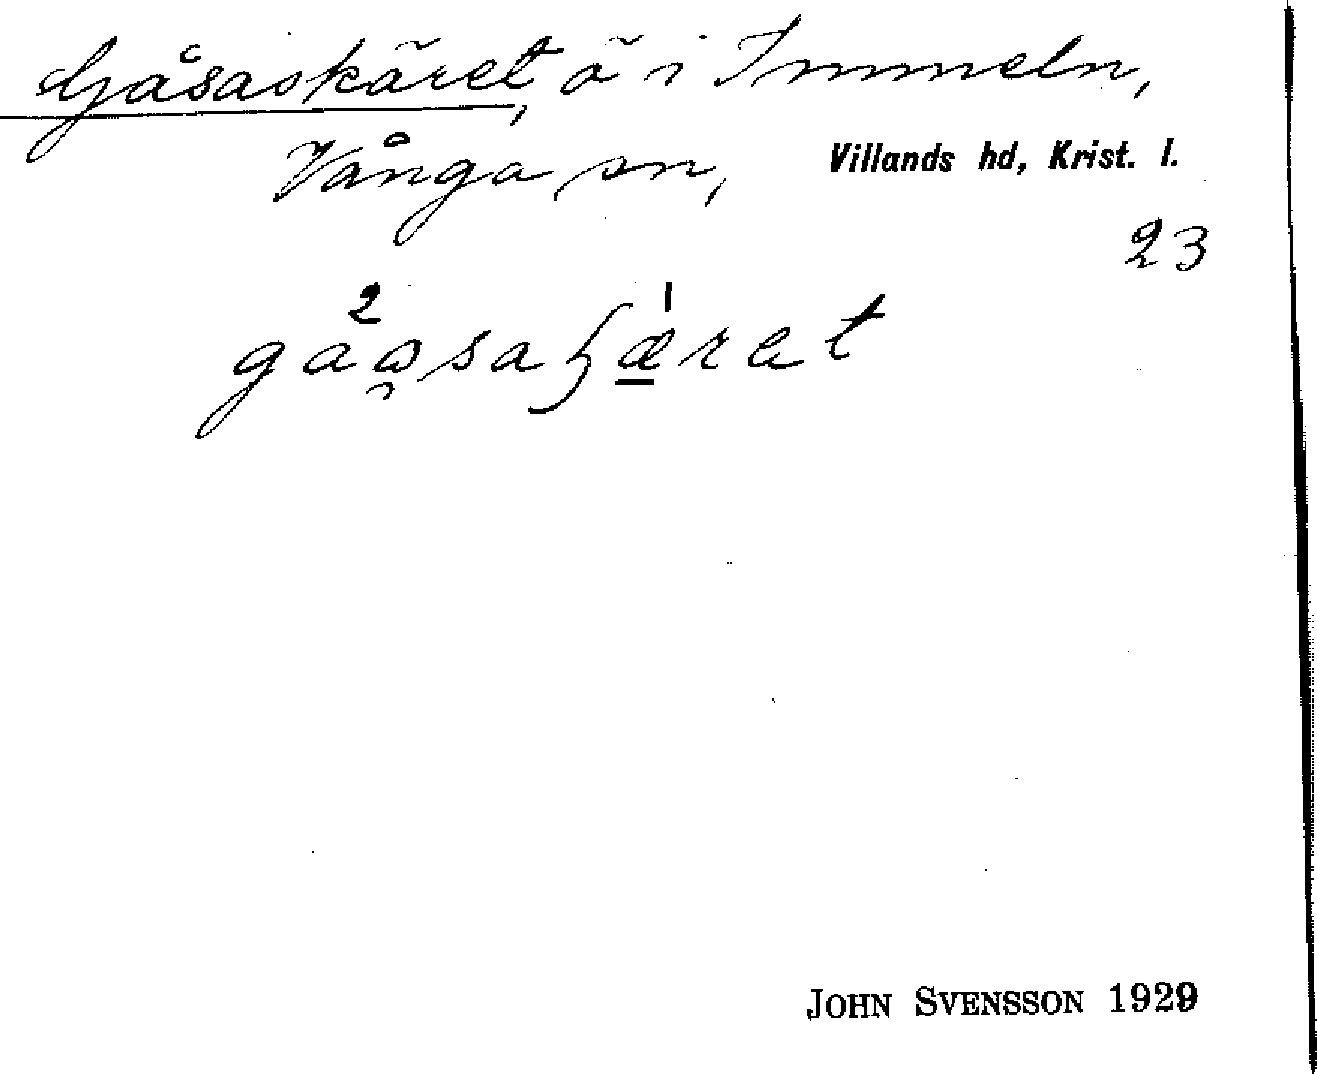 Gåsaskäret, ö i Immeln,
Vånga sn, Villands hd, Krist. l.
23
JOHN SVENSSON 1929